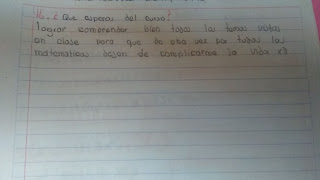 16. ¿Que esperas del curso?
lograr comprender bien todos los temas vistos
en clase para que de una vez por todas las
matematicas dejen de complicarme la vida xD